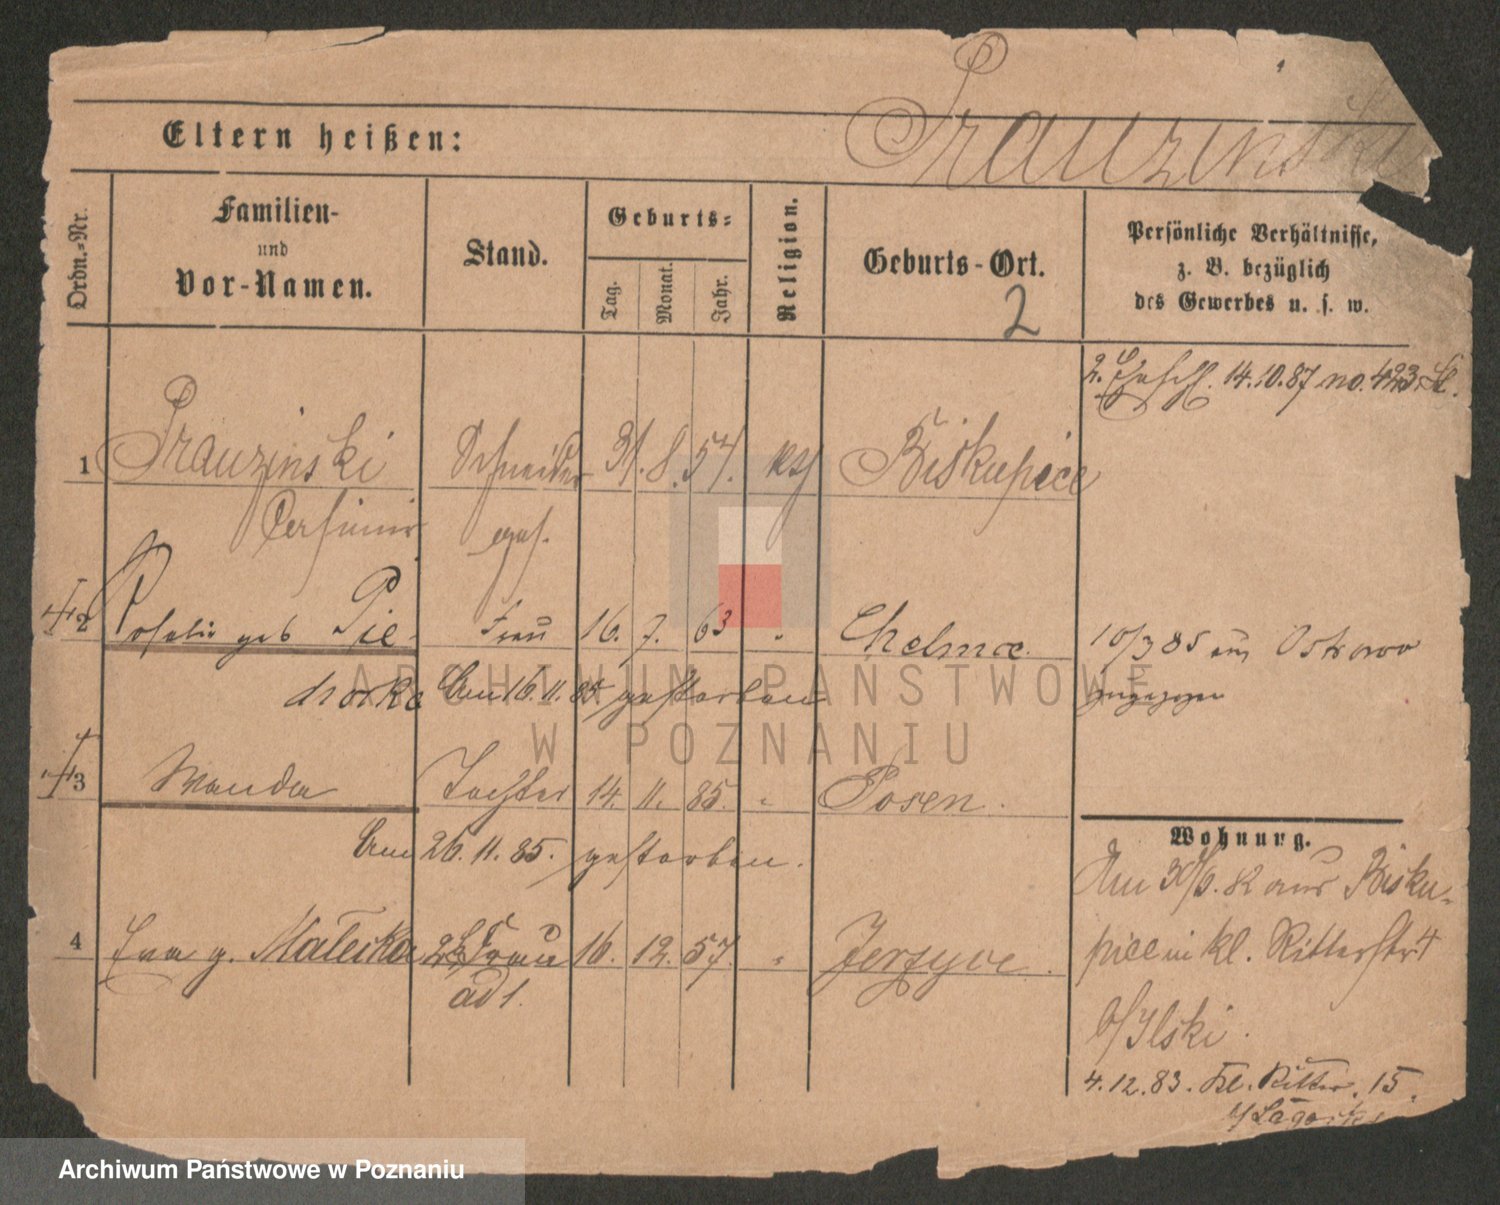 Prauzinski
Eltern heißen:
Ordn.-Nr.
Familien-
und
Vor-Namen.
Stand.
Geburts-
Tag.
Monat.
Jahr.
Religion.
Geburts-Ort.
2
Persönliche Verhältnisse,
z. B. bezüglich
des Gewerbes u. s. w.
2. 14.10.87 no. 423.
1 Prauzinski Schneider 31. 8. 57. Biskupice
Casimir
2 Rosalie geb Pie- Frau 16. 7. 63 " Chelmce. 10/3 85 aus Ostrowo
chorka Am 16. 11. 85 gestorben zugezogen
3 Wanda Tochter 14. 11. 85. " Posen.
Am 26. 11. 85. gestorben.
4 Eva g. Malecka 2te Frau 16. 12. 57. " Jerzyce.
ad 1.
Wohnung.
Am 30/9. 82 aus Bisku-
pice in kl. Ritterstr 4
b/Ilski.
4. 12. 83. Kl. Ritter. 15.
ARCHIWUM PAŃSTWOWE
W POZNANIU
Archiwum Państwowe w Poznaniu